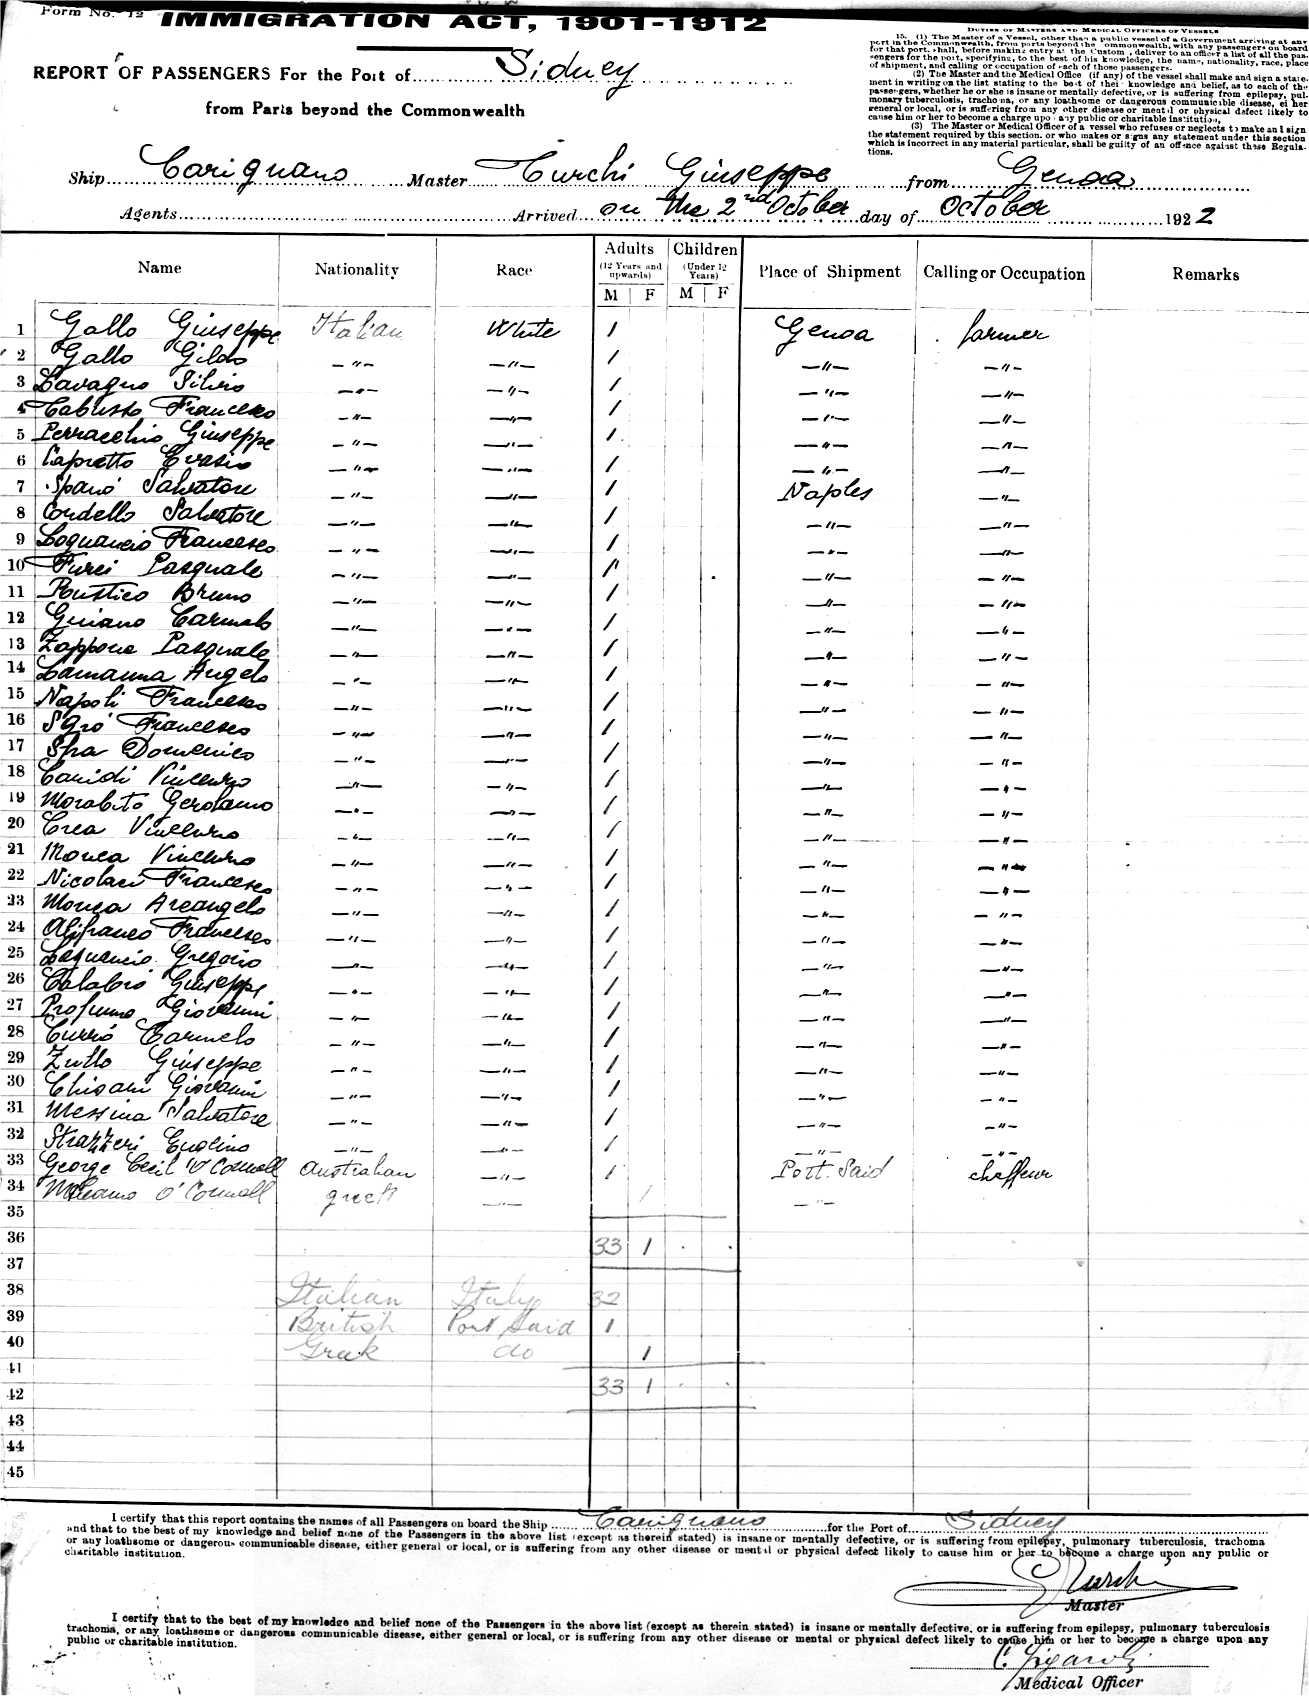 Form No. 12
IMMIGRATION ACT, 1901-1912
REPORT OF PASSENGERS For the Port of Sidney
from Parts beyond the Commonwealth
DUTIES OF MASTERS AND MEDICAL OFFICERS OF VESSELS
15. (1) The Master of a Vessel, other than a public vessel of a Government arriving at any
port in the Commonwealth, from ports beyond the Commonwealth, with any passengers on board
for that port, shall, before making entry at the Custom , deliver to an officer a list of all the pas-
sengers for the port, specifying, to the best of his knowledge, the name, nationality, race, place
of shipment, and calling or occupation of each of those passengers.
(2) The Master and the Medical Office (if any) of the vessel shall make and sign a state-
ment in writing on the list stating to the best of their knowledge and belief, as to each of the
passengers, whether he or she is insane or mentally defective, or is suffering from epilepsy, pul-
monary tuberculosis, trachoma, or any loathsome or dangerous communicable disease, either
general or local, or is suffering from any other disease or mental or physical defect likely to
cause him or her to become a charge upon any public or charitable institution,
(3) The Master or Medical Officer of a vessel who refuses or neglects to make and sign
the statement required by this section, or who makes or signs any statement under this section
which is incorrect in any material particular, shall be guilty of an offence against these Regula-
tions.
Ship Carignano Master Turchi Giuseppe from Genoa
Agents Arrived on the 2nd October day of October 1922
Name Nationality Race Adults (12 Years and upwards) M F Children (Under 12 Years) M F Place of Shipment Calling or Occupation Remarks
1 Gallo Giuseppe Italian White 1 Genoa farmer
2 Gallo Gildo -"- -"- 1 -"- -"-
3 Lavagno Silvio -"- -"- 1 -"- -"-
4 Francesco -"- -"- 1 -"- -"-
5 Perracchio Giuseppe -"- -"- 1 -"- -"-
6 Capretto Evasio -"- -"- 1 -"- -"-
7 Spanò Salvatore -"- -"- 1 Naples -"-
8 Cordello Salvatore -"- -"- 1 -"- -"-
9 Loguancio Francesco -"- -"- 1 -"- -"-
10 Furci Pasquale -"- -"- 1 -"- -"-
11 Rustico Bruno -"- -"- 1 -"- -"-
12 Carmelo -"- -"- 1 -"- -"-
13 Zappone Pasquale -"- -"- 1 -"- -"-
14 Lamanna Angelo -"- -"- 1 -"- -"-
15 Napoli Francesco -"- -"- 1 -"- -"-
16 Sgrò Francesco -"- -"- 1 -"- -"-
17 Domenico -"- -"- 1 -"- -"-
18 Caridi Vincenzo -"- -"- 1 -"- -"-
19 Morabito Gerolamo -"- -"- 1 -"- -"-
20 Crea Vincenzo -"- -"- 1 -"- -"-
21 Monea Vincenzo -"- -"- 1 -"- -"-
22 Nicolaci Francesco -"- -"- 1 -"- -"-
23 Monea Arcangelo -"- -"- 1 -"- -"-
24 Alifranco Francesco -"- -"- 1 -"- -"-
25 Gregorio -"- -"- 1 -"- -"-
26 Calabrò Giuseppe -"- -"- 1 -"- -"-
27 Profumo Giovanni -"- -"- 1 -"- -"-
28 Currò Carmelo -"- -"- 1 -"- -"-
29 Zullo Giuseppe -"- -"- 1 -"- -"-
30 Chisari Giovanni -"- -"- 1 -"- -"-
31 Messina Salvatore -"- -"- 1 -"- -"-
32 Strazzeri -"- -"- 1 -"- -"-
33 George Cecil O'Connell Australian -"- 1 Port Said chaffeur
34 O'Connell greek -"- 1 -"-
35
36 33 1 . .
37
38 Italian Italy 32
39 British Port Said 1
40 Greek do 1
41
42 33 1 . .
43
44
45
I certify that this report contains the names of all Passengers on board the Ship Carignano for the Port of Sidney
and that to the best of my knowledge and belief none of the Passengers in the above list (except as therein stated) is insane or mentally defective, or is suffering from epilepsy, pulmonary tuberculosis, trachoma
or any loathsome or dangerous communicable disease, either general or local, or is suffering from any other disease or mental or physical defect likely to cause him or her to become a charge upon any public or
charitable institution.
G Turchi
Master
I certify that to the best of my knowledge and belief none of the Passengers in the above list (except as therein stated) is insane or mentally defective, or is suffering from epilepsy, pulmonary tuberculosis
trachoma, or any loathsome or dangerous communicable disease, either general or local, or is suffering from any other disease or mental or physical defect likely to cause him or her to become a charge upon any
public or charitable institution.
Medical Officer